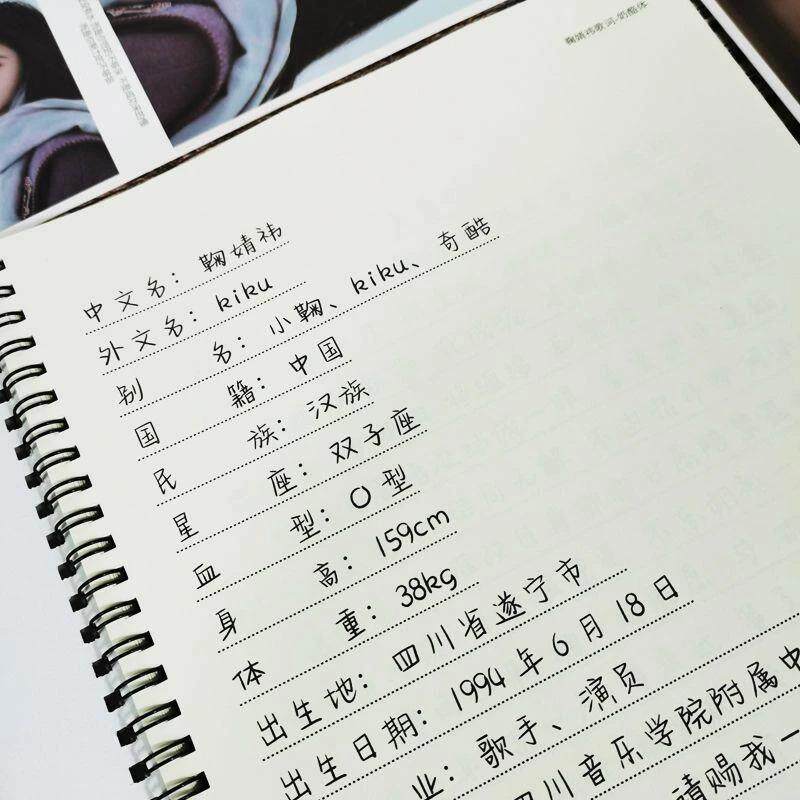 鞠婧祎歌词·奶酪体
中文名：鞠婧祎
外文名：kiku
别名：小鞠、kiku、奇酷
国籍：中国
民族：汉族
星座：双子座
血型：O型
身高：159cm
体重：38kg
出生地：四川省遂宁市
出生日期：1994年6月18日
业：歌手、演员
四川音乐学院附属中
请赐我一